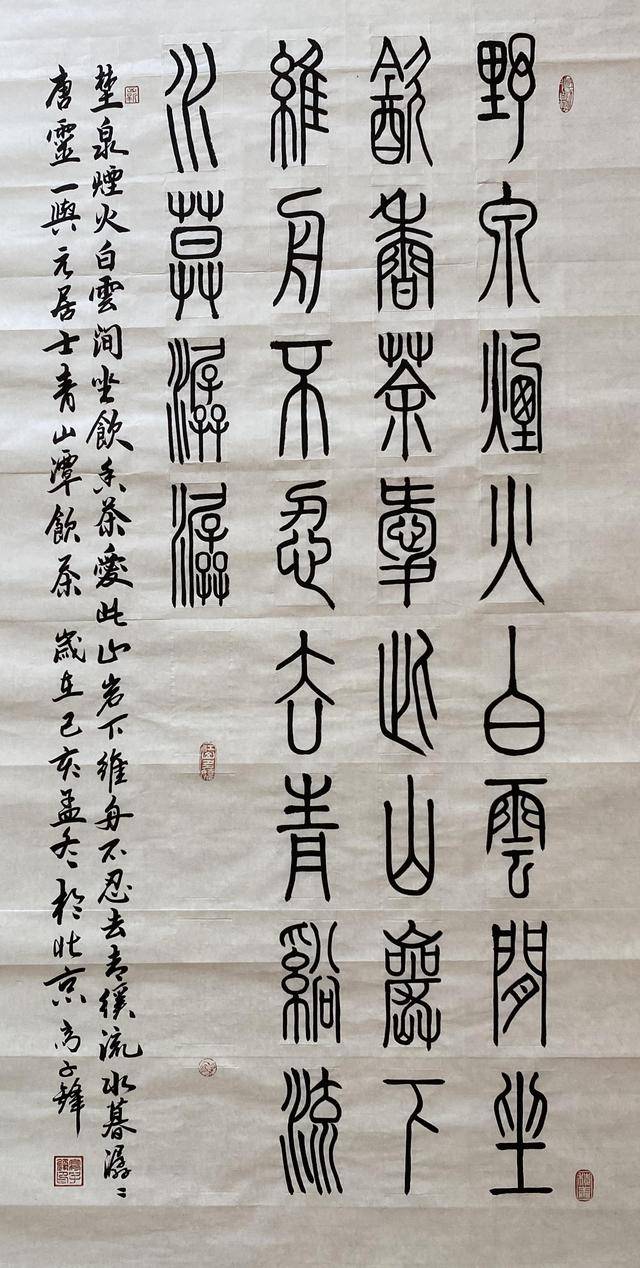 野泉煙火白雲間坐
飲香茶愛此山巖下
維舟不忍去青谿流
水莫潺潺
埜泉煙火白雲間坐飲香茶愛此山岩下維舟不忍去青溪流水暮潺〻
唐靈一與元居士青山潭飲茶 歲在己亥孟冬於北京 高子鋒